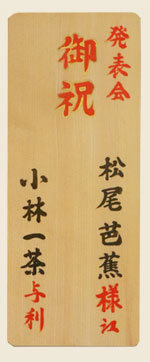 発表会
御祝
松尾芭蕉様江
小林一茶与利